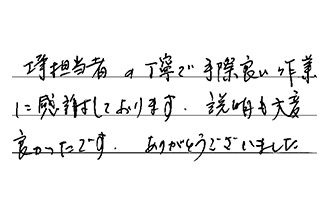 工事担当者の丁寧で手際良い作業
に感謝しております。説明も大変
良かったです。ありがとうございました